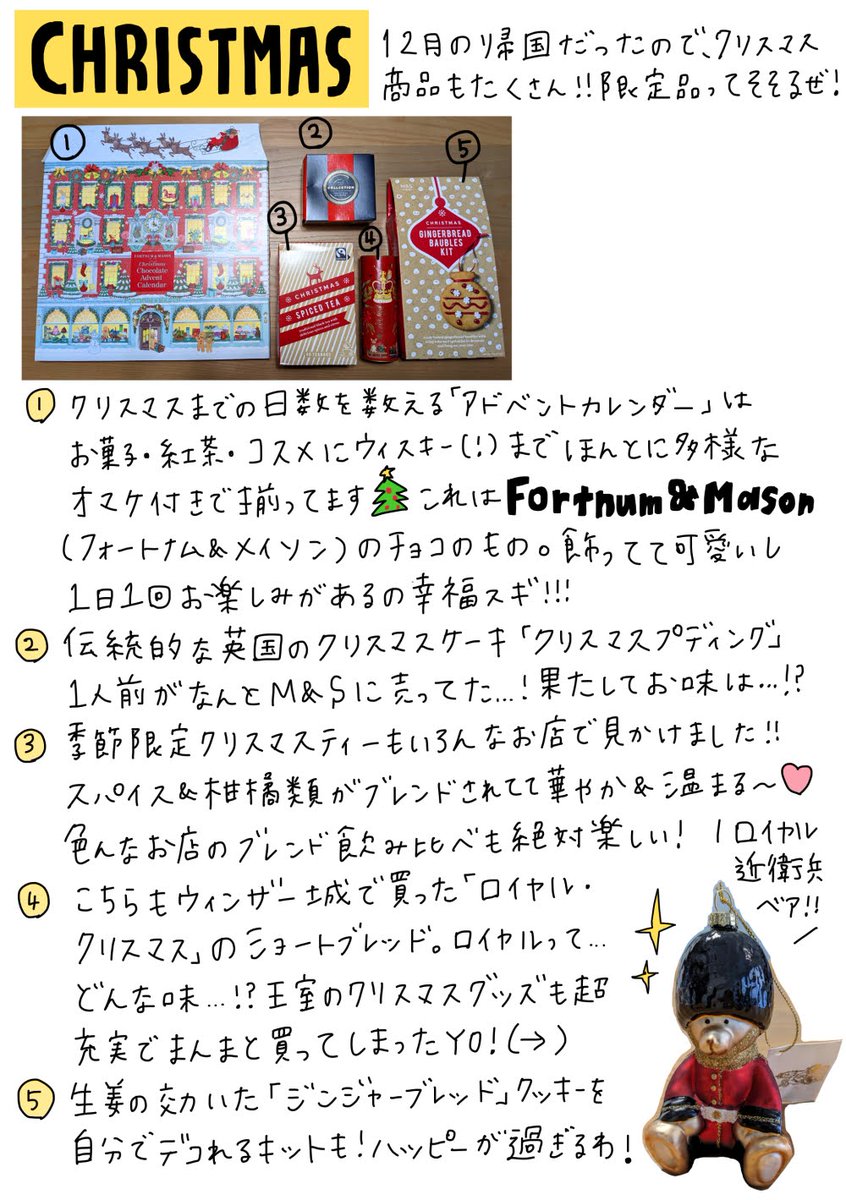 CHRISTMAS
12月の帰国だったので、クリスマス
商品もたくさん!!限定品ってそそるぜ!
①
②
③
④
⑤
FORTNUM & MASON
Christmas
Chocolate
Advent
Calendar
COLLECTION
CHRISTMAS
SPICED TEA
CHRISTMAS
GINGERBREAD
BAUBLES
KIT
① クリスマスまでの日数を数える「アドベントカレンダー」は
お菓子・紅茶・コスメにウィスキー(!)までほんとに多様な
オマケ付きで揃ってます これは Fortnum&Mason
(フォートナム&メイソン)のチョコのもの。飾ってて可愛いし
1日1回お楽しみがあるの幸福スギ!!!
② 伝統的な英国のクリスマスケーキ「クリスマスプディング」
1人前がなんとM&Sに売ってた…!果たしてお味は…!?
③ 季節限定クリスマスティーもいろんなお店で見かけました!!
スパイス&柑橘類がブレンドされてて華やか&温まる〜
色んなお店のブレンド飲み比べも絶対楽しい!
ロイヤル
近衛兵
ベア!!
④ こちらもウィンザー城で買った「ロイヤル・
クリスマス」のショートブレッド。ロイヤルって…
どんな味…!?王室のクリスマスグッズも超
充実でまんまと買ってしまったYO!(→)
⑤ 生姜の効いた「ジンジャーブレッド」クッキーを
自分でデコれるキットも!ハッピーが過ぎるわ!